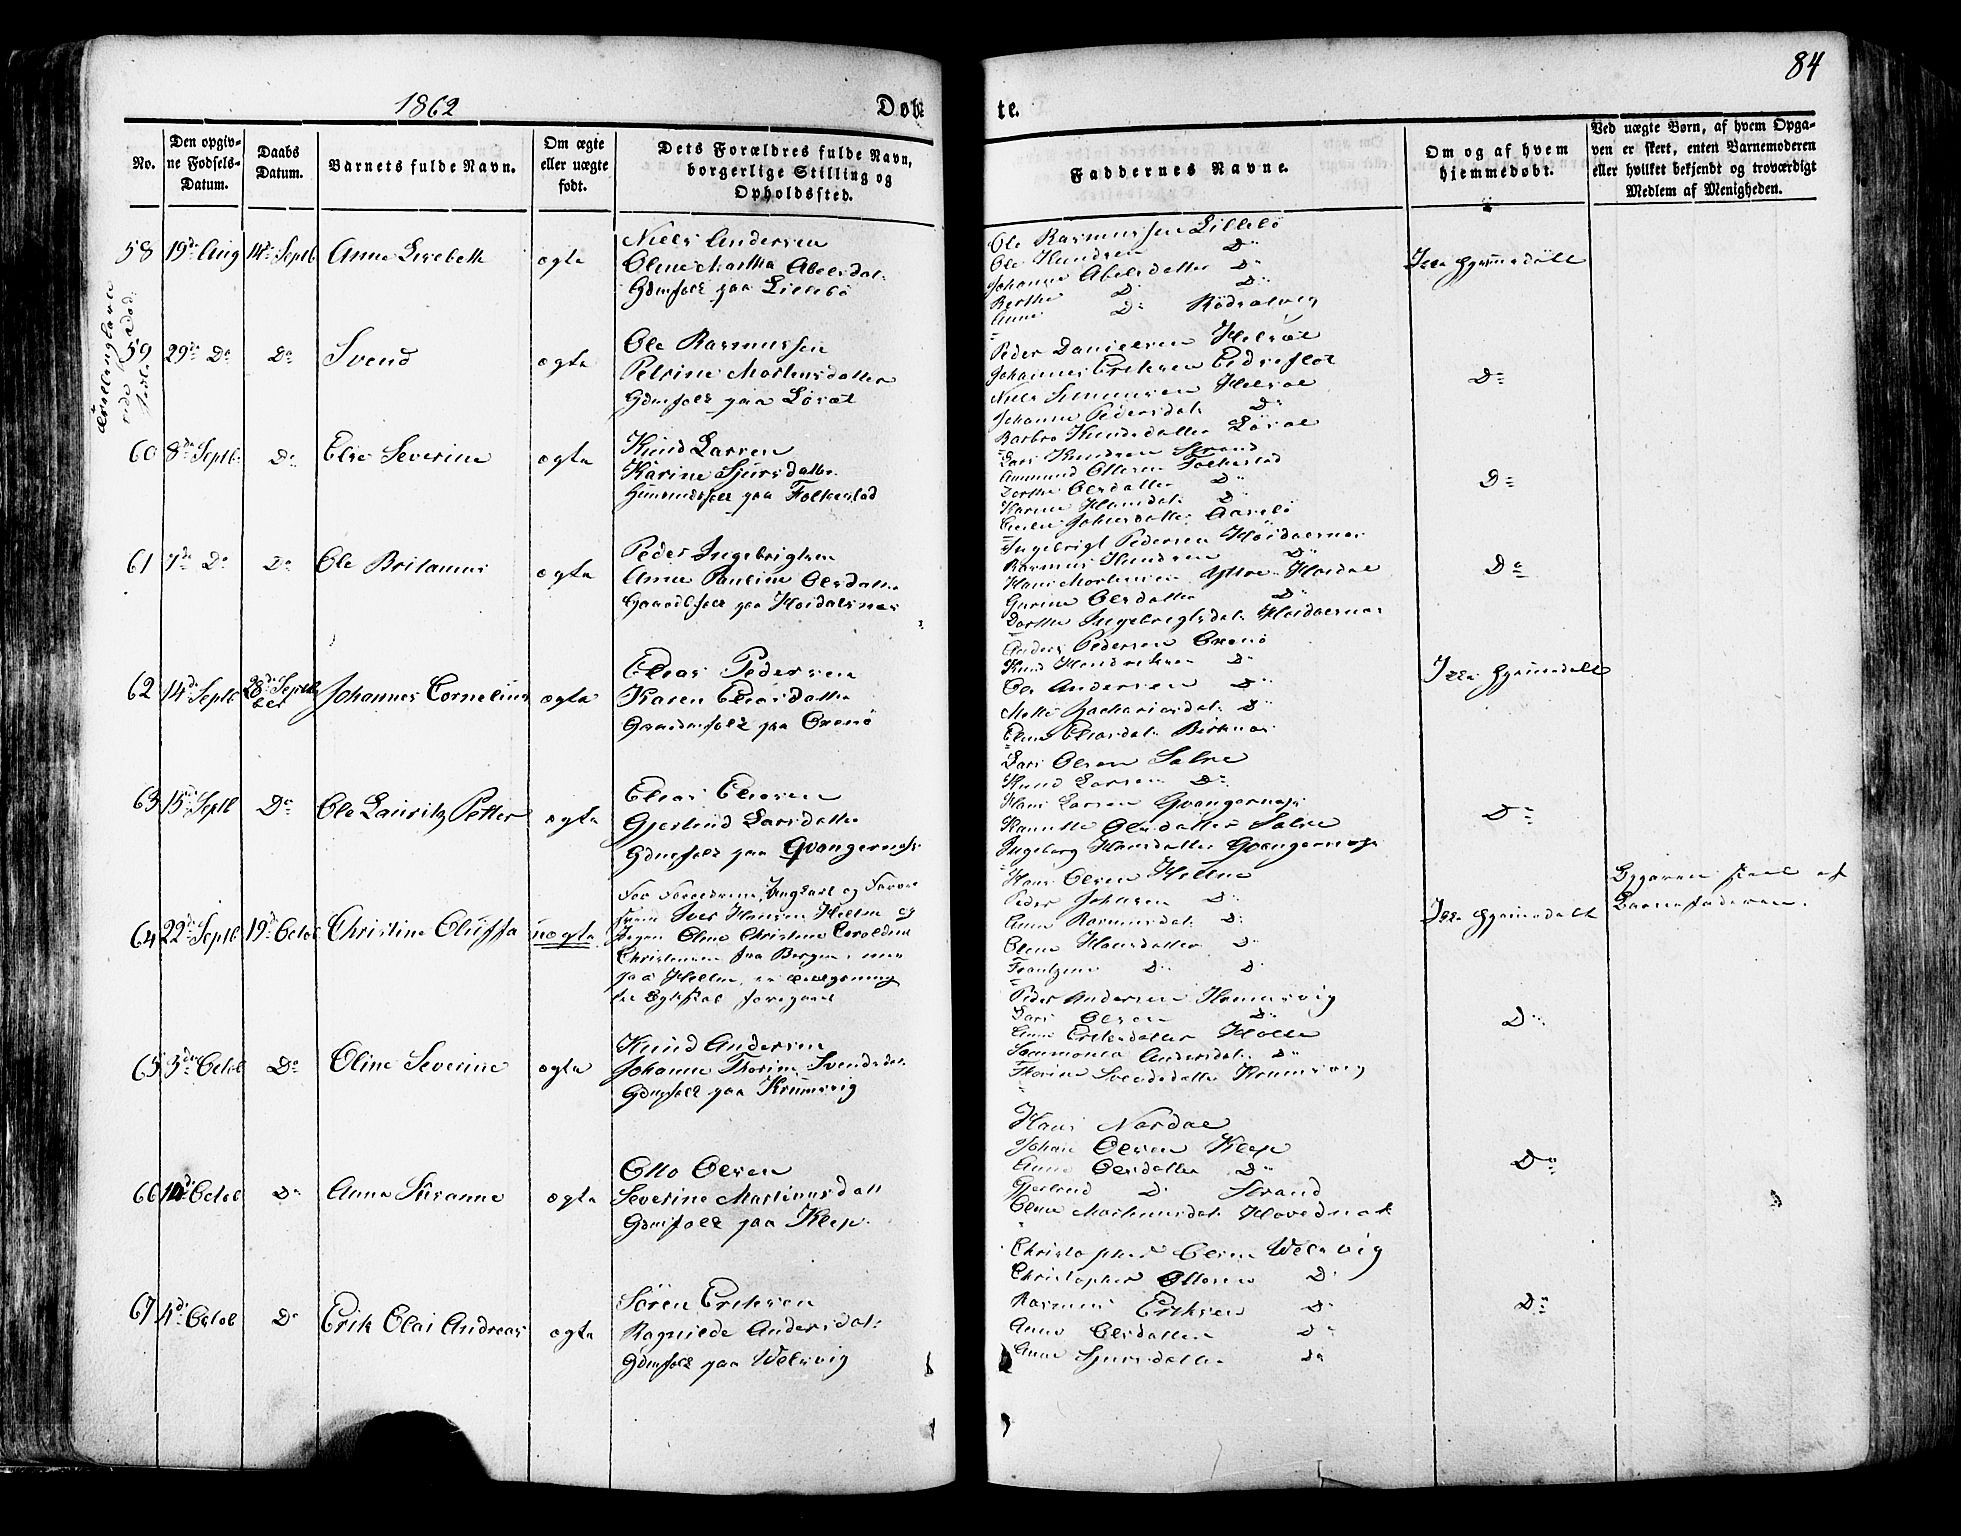 84
1862
Døbte.
No.
Den opgivne Fødsels-Datum.
Daabs Datum.
Barnets fulde Navn.
Om ægte eller uægte født.
Dets Forældres fulde Navn, borgerlige Stilling og Opholdssted.
Faddernes Navne.
Om og af hvem hjemmedøbt.
Ved uægte Børn, af hvem Opgaven er skert, enten Barnemoderen eller hvilket bekjendt og troværdigt Medlem af Menigheden.
58 19de Aug 14de Septb Anne Lisebeth ægte
Niels Andersen
Oline Martha Abelsdat:
Gdmfolk paa Lillebö
Ole Rasmussen Lillebö
Ole Knudsen Do
Johanne Abelsdatter Do
Berthe Do Do
Anne Do Rödsalvig
Ikke hjemmedöbt
Tvillingbarn
59 29de Do Do Svend ægte
Ole Rasmussen
Petrine Mortensdatter
Gdmfolk paa Lösæt
Peder Danielsen Helsæt
Johannes Eriksen Eidseflot
Niels Simensen Helsæt
Johanne Pedersdat: Do
Barbro Knudsdatter Lösæt
Do
60 8de Septb. Do Else Severine ægte
Knud Larsen
Karine Sjursdatter
Huusmdsfolk paa Folkestad
Lars Knudsen Strand
Ammund Ottesen Folkestad
Dorthe Olsdatter Do
Karine Hansdat: Do
Johnsdatter Aarebö
Do
61 7de Do Do Ole Britanus ægte
Peder Ingebrigtsen
Anne Pauline Olsdatter
Gaardbfolk paa Höidalsnes
Ingebrigt Pedersen Höidalsnes
Rasmus Knudsen Do
Hans Mortensen Yttre-Höidal
Gurine Olsdatter Do
Dorthe Ingebrigtsdat: Höidalsnes
Do
62 14de Septb 28de Septb Johannes Cornelius ægte
Elias Pedersen
Karen Eliasdatter
Gaardmfolk paa Grenö
Anders Pedersen Grenö
Knud Hendriksen Do
Ole Andersen Do
Mette Zachariasdat: Do
Eline Eliasdat: Birknes
Ikke hjemmedöbt
63 15de Septb Do Ole Lauritz Petter ægte
Elias Eliasen
Gjertrud Larsdatter
Gdmfolk paa Gvangernæs
Lars Olsen Solve
Knud Larsen Do
Hans Larsen Gvangernæs
Olsdatter Solve
Ingeborg Hansdatter Gvangernæs
Do
64 22de Septb 19de Octob Christine Oluffa uægte
Ungkarl og
Iver Hansen Hellm og
Pigen Oline Christine
Christensen fra Bergen, nu
paa Hellm
Ægteskab foregaaet
Hans Olsen Hellm
Peder Johnsen Do
Anne Rasmusdat: Do
Oline Hansdatter Do
Frantzine Do Do
Ikke hjemmedöbt
Opgaven skeet af
Barnefaderen.
65 3de Octob Do Oline Severine ægte
Knud Andersen
Johanne Thorine Svendsdat:
Gdmfolk paa Krumsvig
Peder Andersen Krumsvig
Lars Olsen Do
Anne Eriksdatter Holle
Andersdat: Do
Thorine Svendsdatter Krumsvig
Do
66 10de Octob Do Anne Susanne ægte
Otto Olsen
Severine Martinusdatt
Gdmfolk paa Klep.
Hans Nordal
Johan Olsen Klep
Anne Olsdatter Do
Gjertrud Do Strand
Oline Martinusdat: Hovednak
Do
67 4de Octob Do Erik Olai Andreas ægte
Sören Eriksen
Ragnilde Andersdat:
Gdmfolk paa Velsvig
Christopher Olsen Velsvig
Christopher Ottesen Do
Rasmus Eriksen Do
Anne Olsdatter Do
Anne Sjursdatter Do
Do